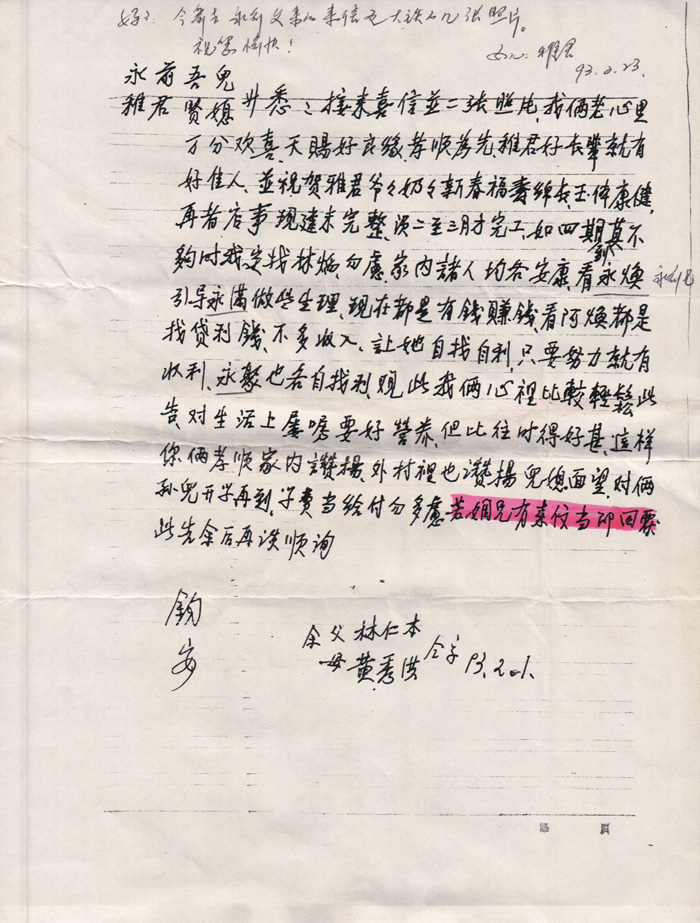 今寄去永前父亲的来信及大铁的几张照片。
祝您愉快！
女儿：雅君
93.2.23.
永前吾兒
雅君賢媳廾悉：接来喜信並二张照片，我俩老心里
万分欢喜，天賜好良缘，孝順為先，雅君好長輩就有
好佳人，並祝贺雅君爷々奶々新春福寿绵长玉体康健，
再者店事现建未完整，须二至三月才完工，如四期款莫不
夠时我定找林焔，勿慮，家内諸人均各安康，看永煥
引导永满做些生理，现在都是有錢賺錢，看阿煥都是
找贷利錢，不多收入，让她自找自利，只要努力就有
收利，永聚也各自找利，观此我俩心裡比較輕鬆，此
告，对生活上屡嘱要好营养，但比往时得好甚，这样
你俩孝顺家内讚揚，外村裡也讚揚兒媳面望，对俩
孙兒开学再到，学费当给付勿多慮，若姻兄有来仪当即回票
此先余后再谈顺询
鈞
安
余父林仁本
母黄秀洪
仝字93.2.1.